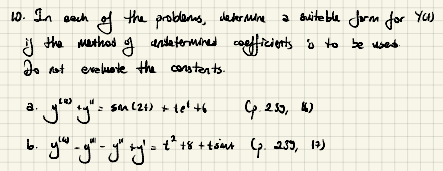 10. In each of the problems, determine a suitable form for Y(t)
if the method of undetermined coefficients is to be used.
Do not evaluate the constants.
a. y⁽⁴⁾ + y'' = sin(2t) + te^t + 6 (p. 239, 16)
b. y⁽⁴⁾ - y''' - y'' + y' = t² + 8 + t sin t (p. 239, 17)